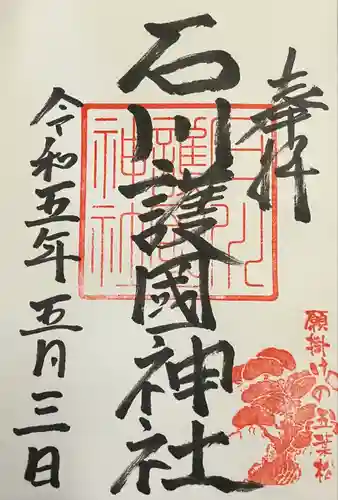 奉拝
石川護國神社
令和五年五月三日
石川護國神社
願掛けの五葉松